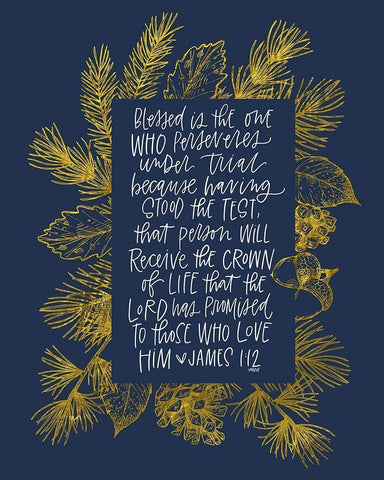 Blessed is the one
WHO perseveres
under trial
because having
STOOD the TEST,
that person WILL
Receive the CROWN
of LIFE that the
LORD has PROMISED
TO THOSE WHO LOVE
HIM ♥ JAMES 1:12